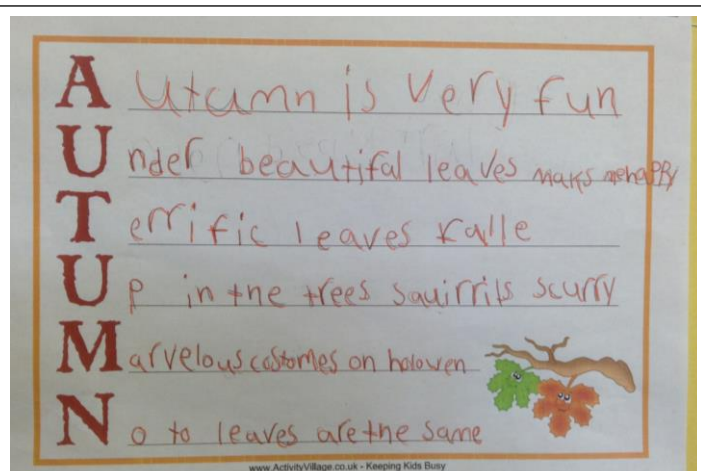 Autumn is very fun
Under beautiful leaves maks me happy
Terrific leaves falle
Up in the trees squirrils scurry
Marvelous costomes on holowen
No to leaves are the same
www.ActivityVillage.co.uk - Keeping Kids Busy